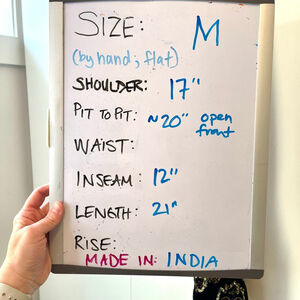 SIZE: M
(by hand; flat)
SHOULDER: 17"
PIT TO PIT: ~20" open front
WAIST:
INSEAM: 12"
LENGTH: 21"
RISE:
MADE IN: INDIA